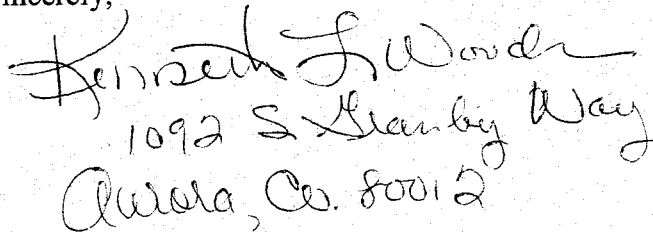 incerely,
Kenneth L Woods
1092 S Granby Way
Aurora, Co. 80012